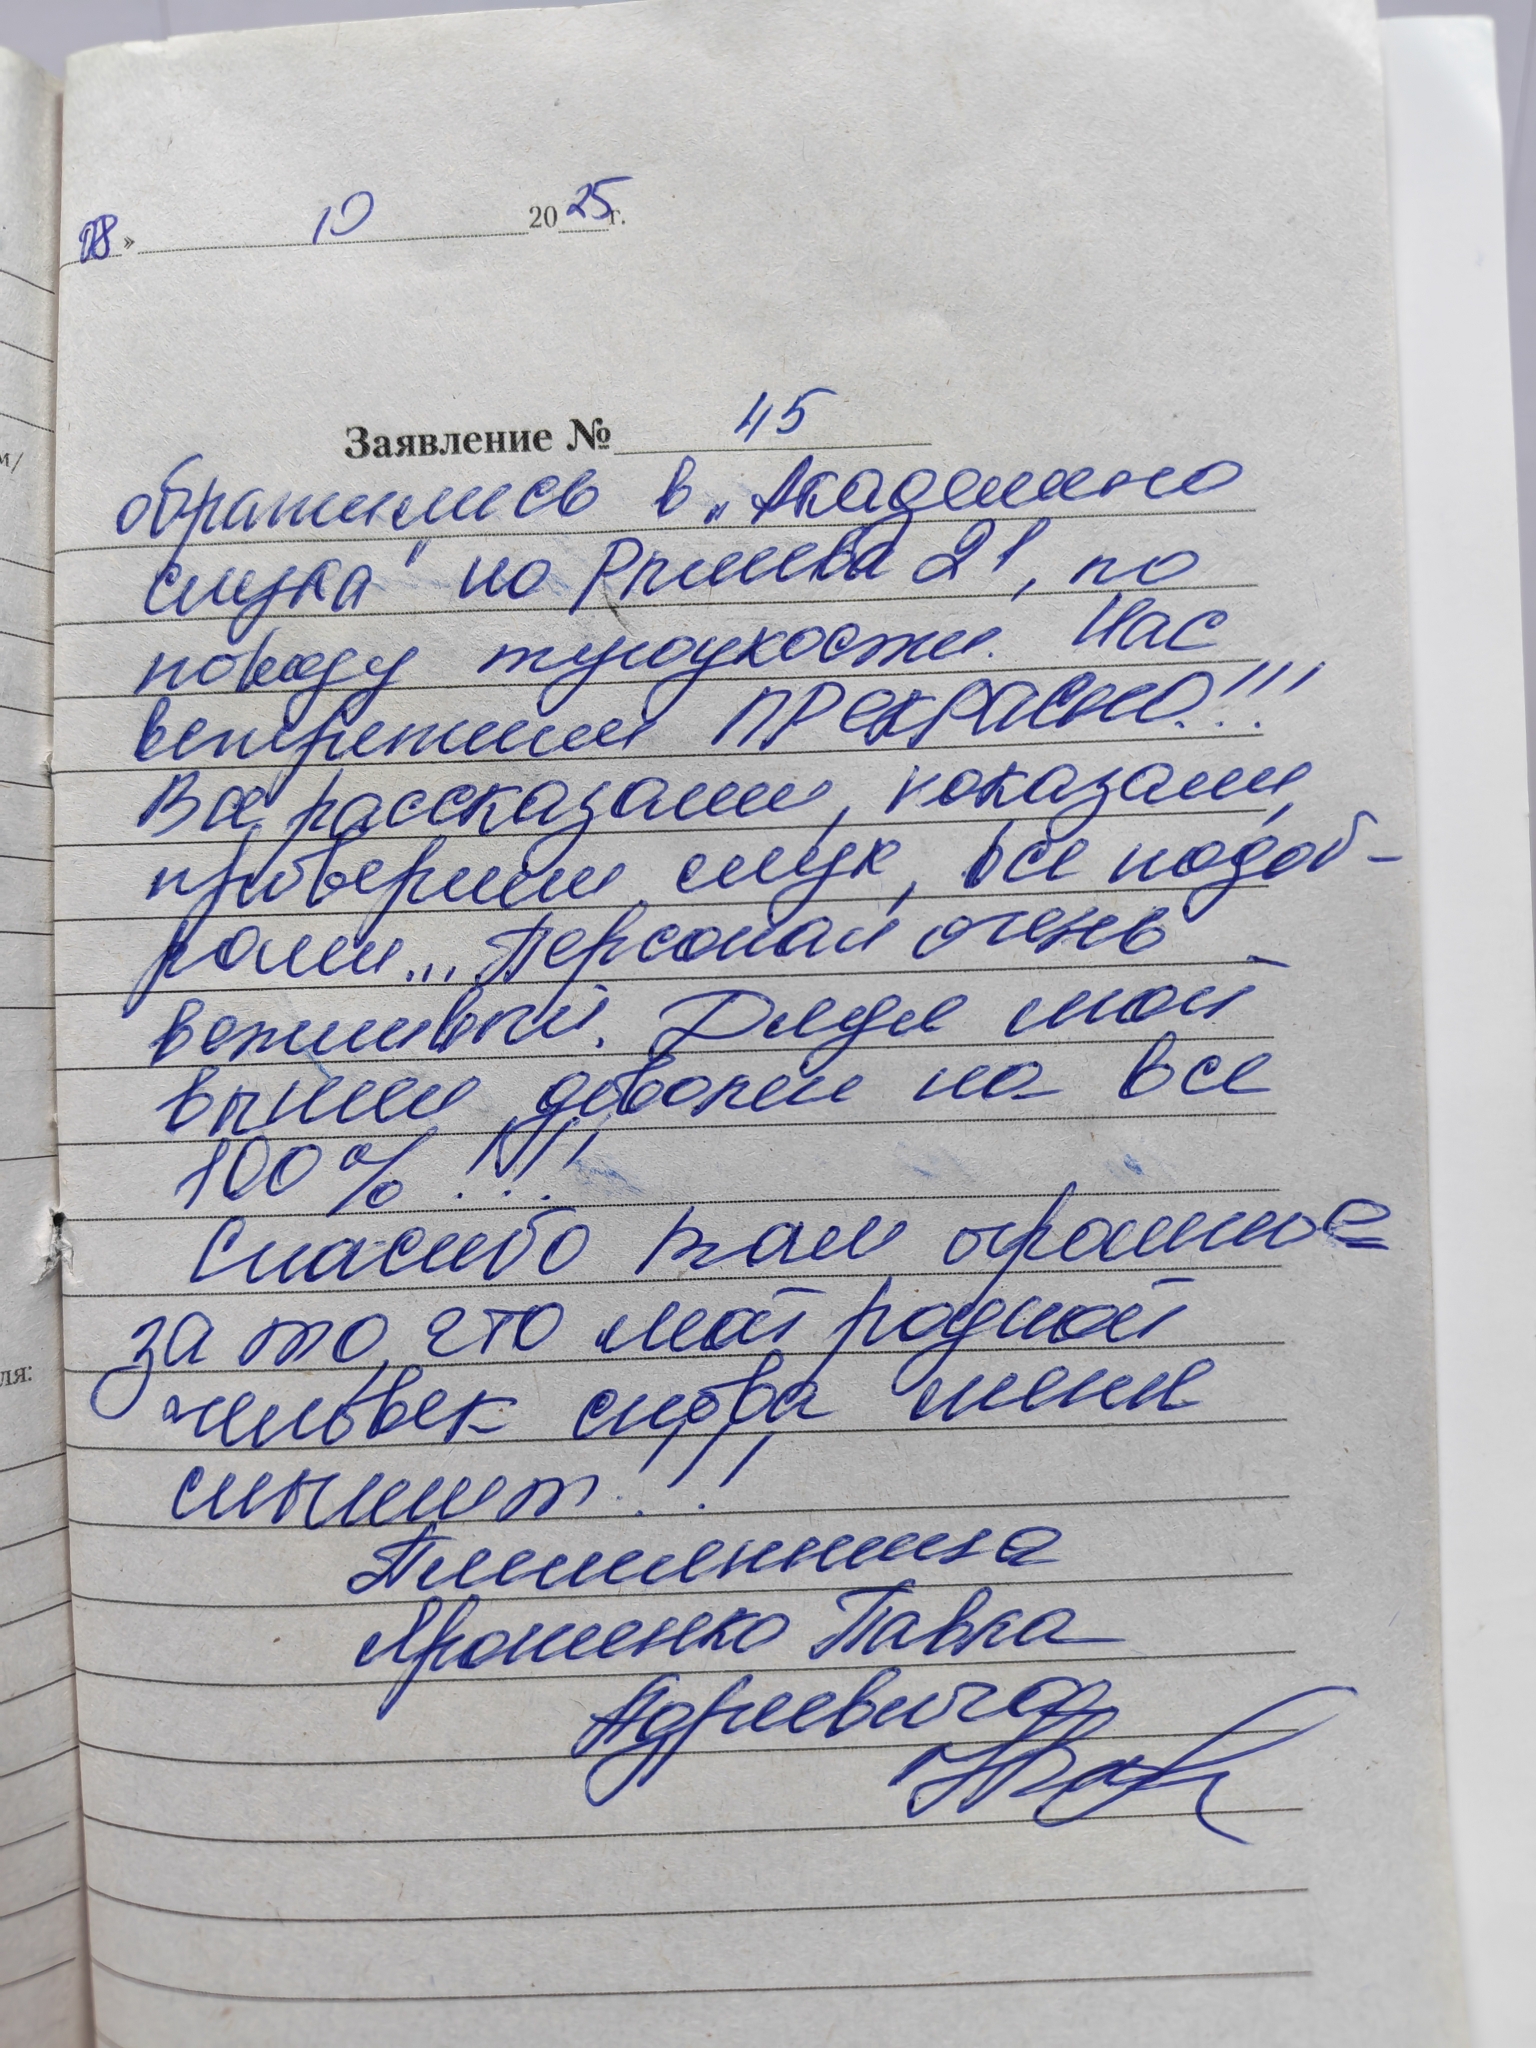 08 » 10 2025 г.
Заявление № 45
обратились в „Академию
слуха" на Рылеева 21, по
поводу тугоухости. Нас
встретили ПРЕКРАСНО!!!
Все рассказали, показали,
проверили слух, все подоб-
рали... Персонал очень
вежливый. Дядя мой
вышел доволен на все
100% !!!
Спасибо вам огромное
за то, что мой родной
человек снова меня
слышит!!!
Племянница
Ярошенко Павла
Андреевича
м/
ля: